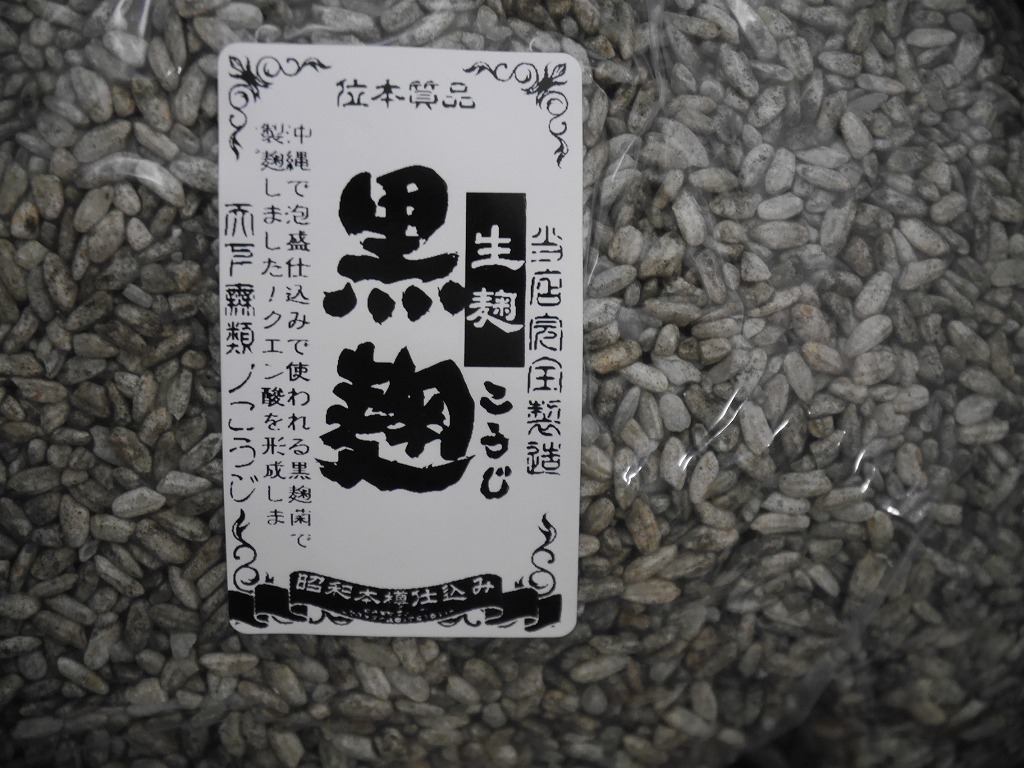 品質本位
当店完全製造
生麹
こうじ
黒麹
沖縄で泡盛仕込みで使われる黒麹菌で
製麹しました！クエン酸を形成しま
天下無類ノこうじ
昭和木樽仕込み